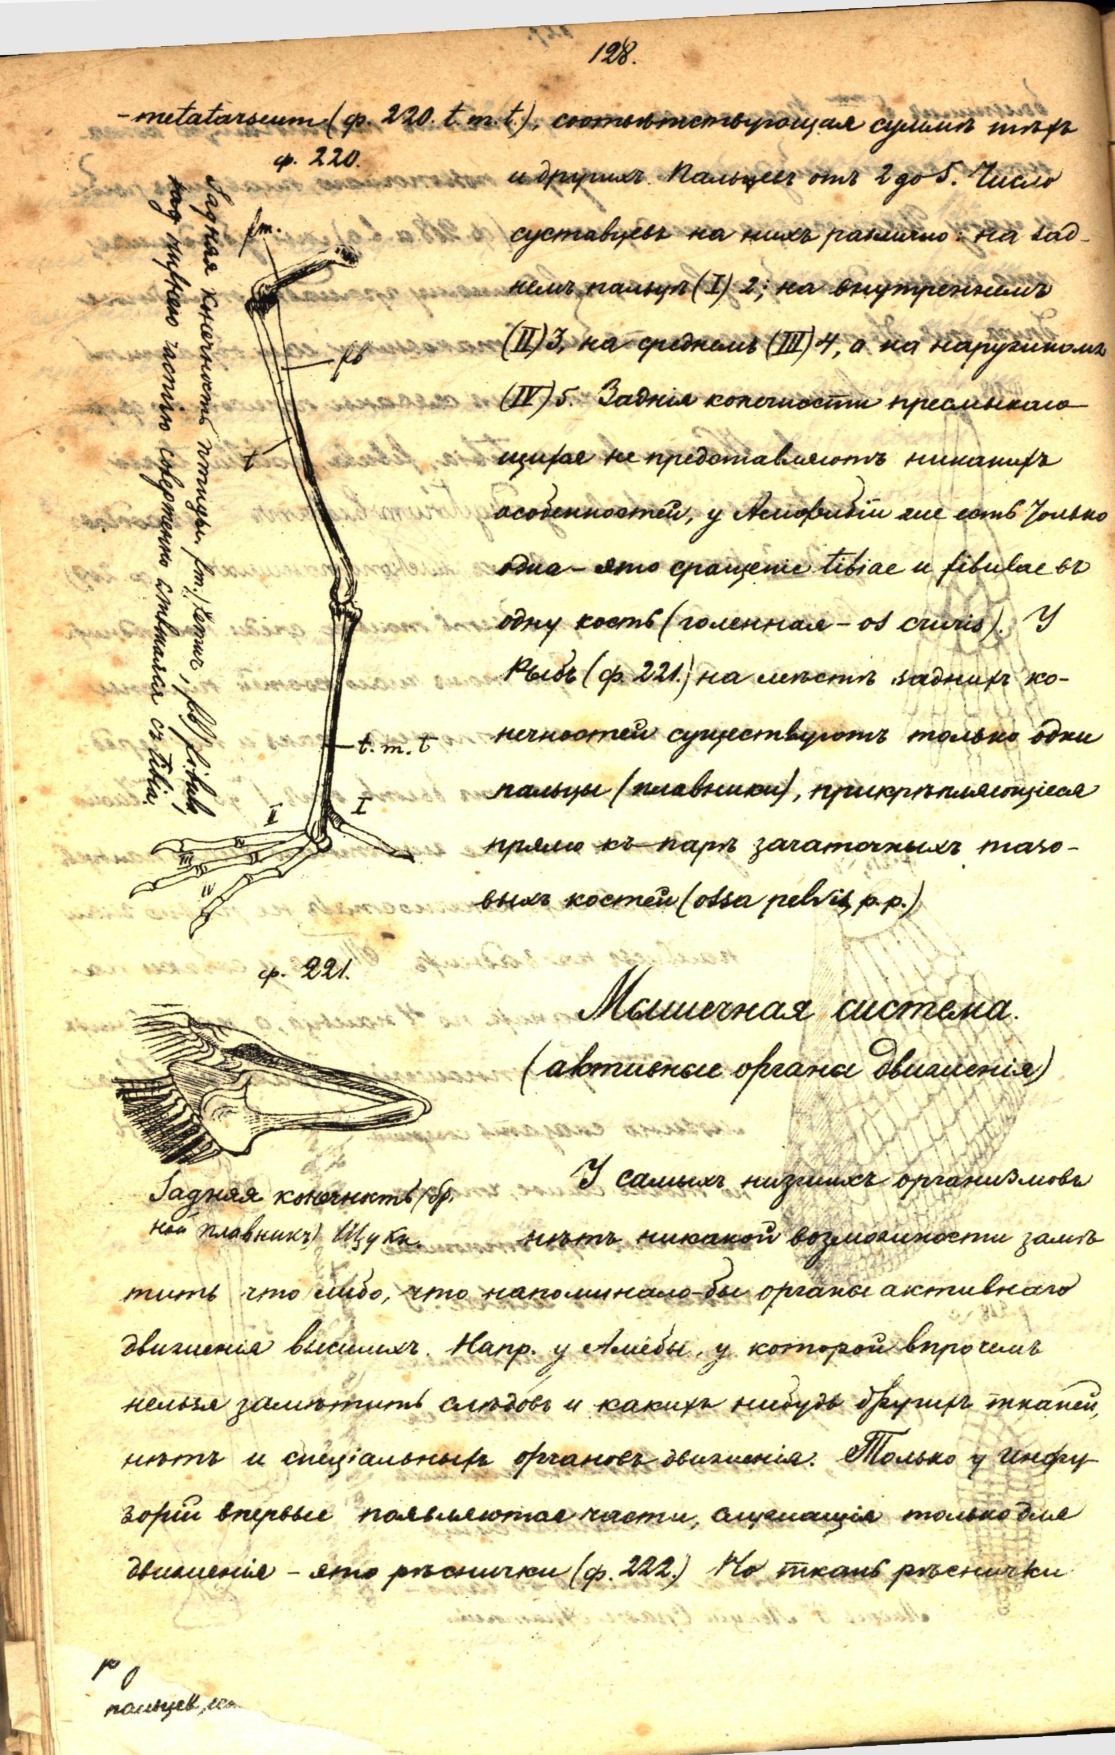 128.
-metatarseum (ф. 220. t. m. t.), соотвѣтствующая суммѣ тѣхъ
ф. 220.
и другихъ. Пальцевъ отъ 2 до 5. Число
суставцевъ на нихъ различно: на зад-
немъ пальцѣ (I) 2; на внутреннемъ
(II) 3, на среднемъ (III) 4, а на наружномъ
(IV) 5. Заднія конечности пресмыкаю-
щихся не представляютъ никакихъ
особенностей, у Амфибій же есть только
одна – это сращеніе tibiae и fibulae въ
одну кость (голенная – os cruris). У
Рыбъ (ф. 221.) на мѣстѣ заднихъ ко-
нечностей существуютъ только одни
пальцы (плавники), прикрѣпляющіеся
прямо къ парѣ зачаточныхъ тазо-
выхъ костей (ossa pelvis, p.p.)
Задняя конечность птицы. fm.) Femur, fb) fibula,
под нижнею частію совершенно слившаяся съ tibia,
fm.
fb
t
t. m. t
I
II
III
ф. 221.
Задняя конечность (бр.
ной плавникъ) Щуки.
Мышечная система.
(активные органы движенія)
У самыхъ низшихъ организмовъ
нѣтъ никакой возможности замѣ
тить что либо, что напоминало-бы органы активнаго
движенія высшихъ. Напр. у Амёбы, у которой впрочемъ
нельзя замѣтить слѣдовъ и какихъ нибудь другихъ тканей,
нѣтъ и спеціальныхъ органовъ движенія. Только у инфу-
зорій впервые появляются части, служащія только для
движенія – это рѣснички (ф. 222.) Но ткань рѣснички
пальцев,